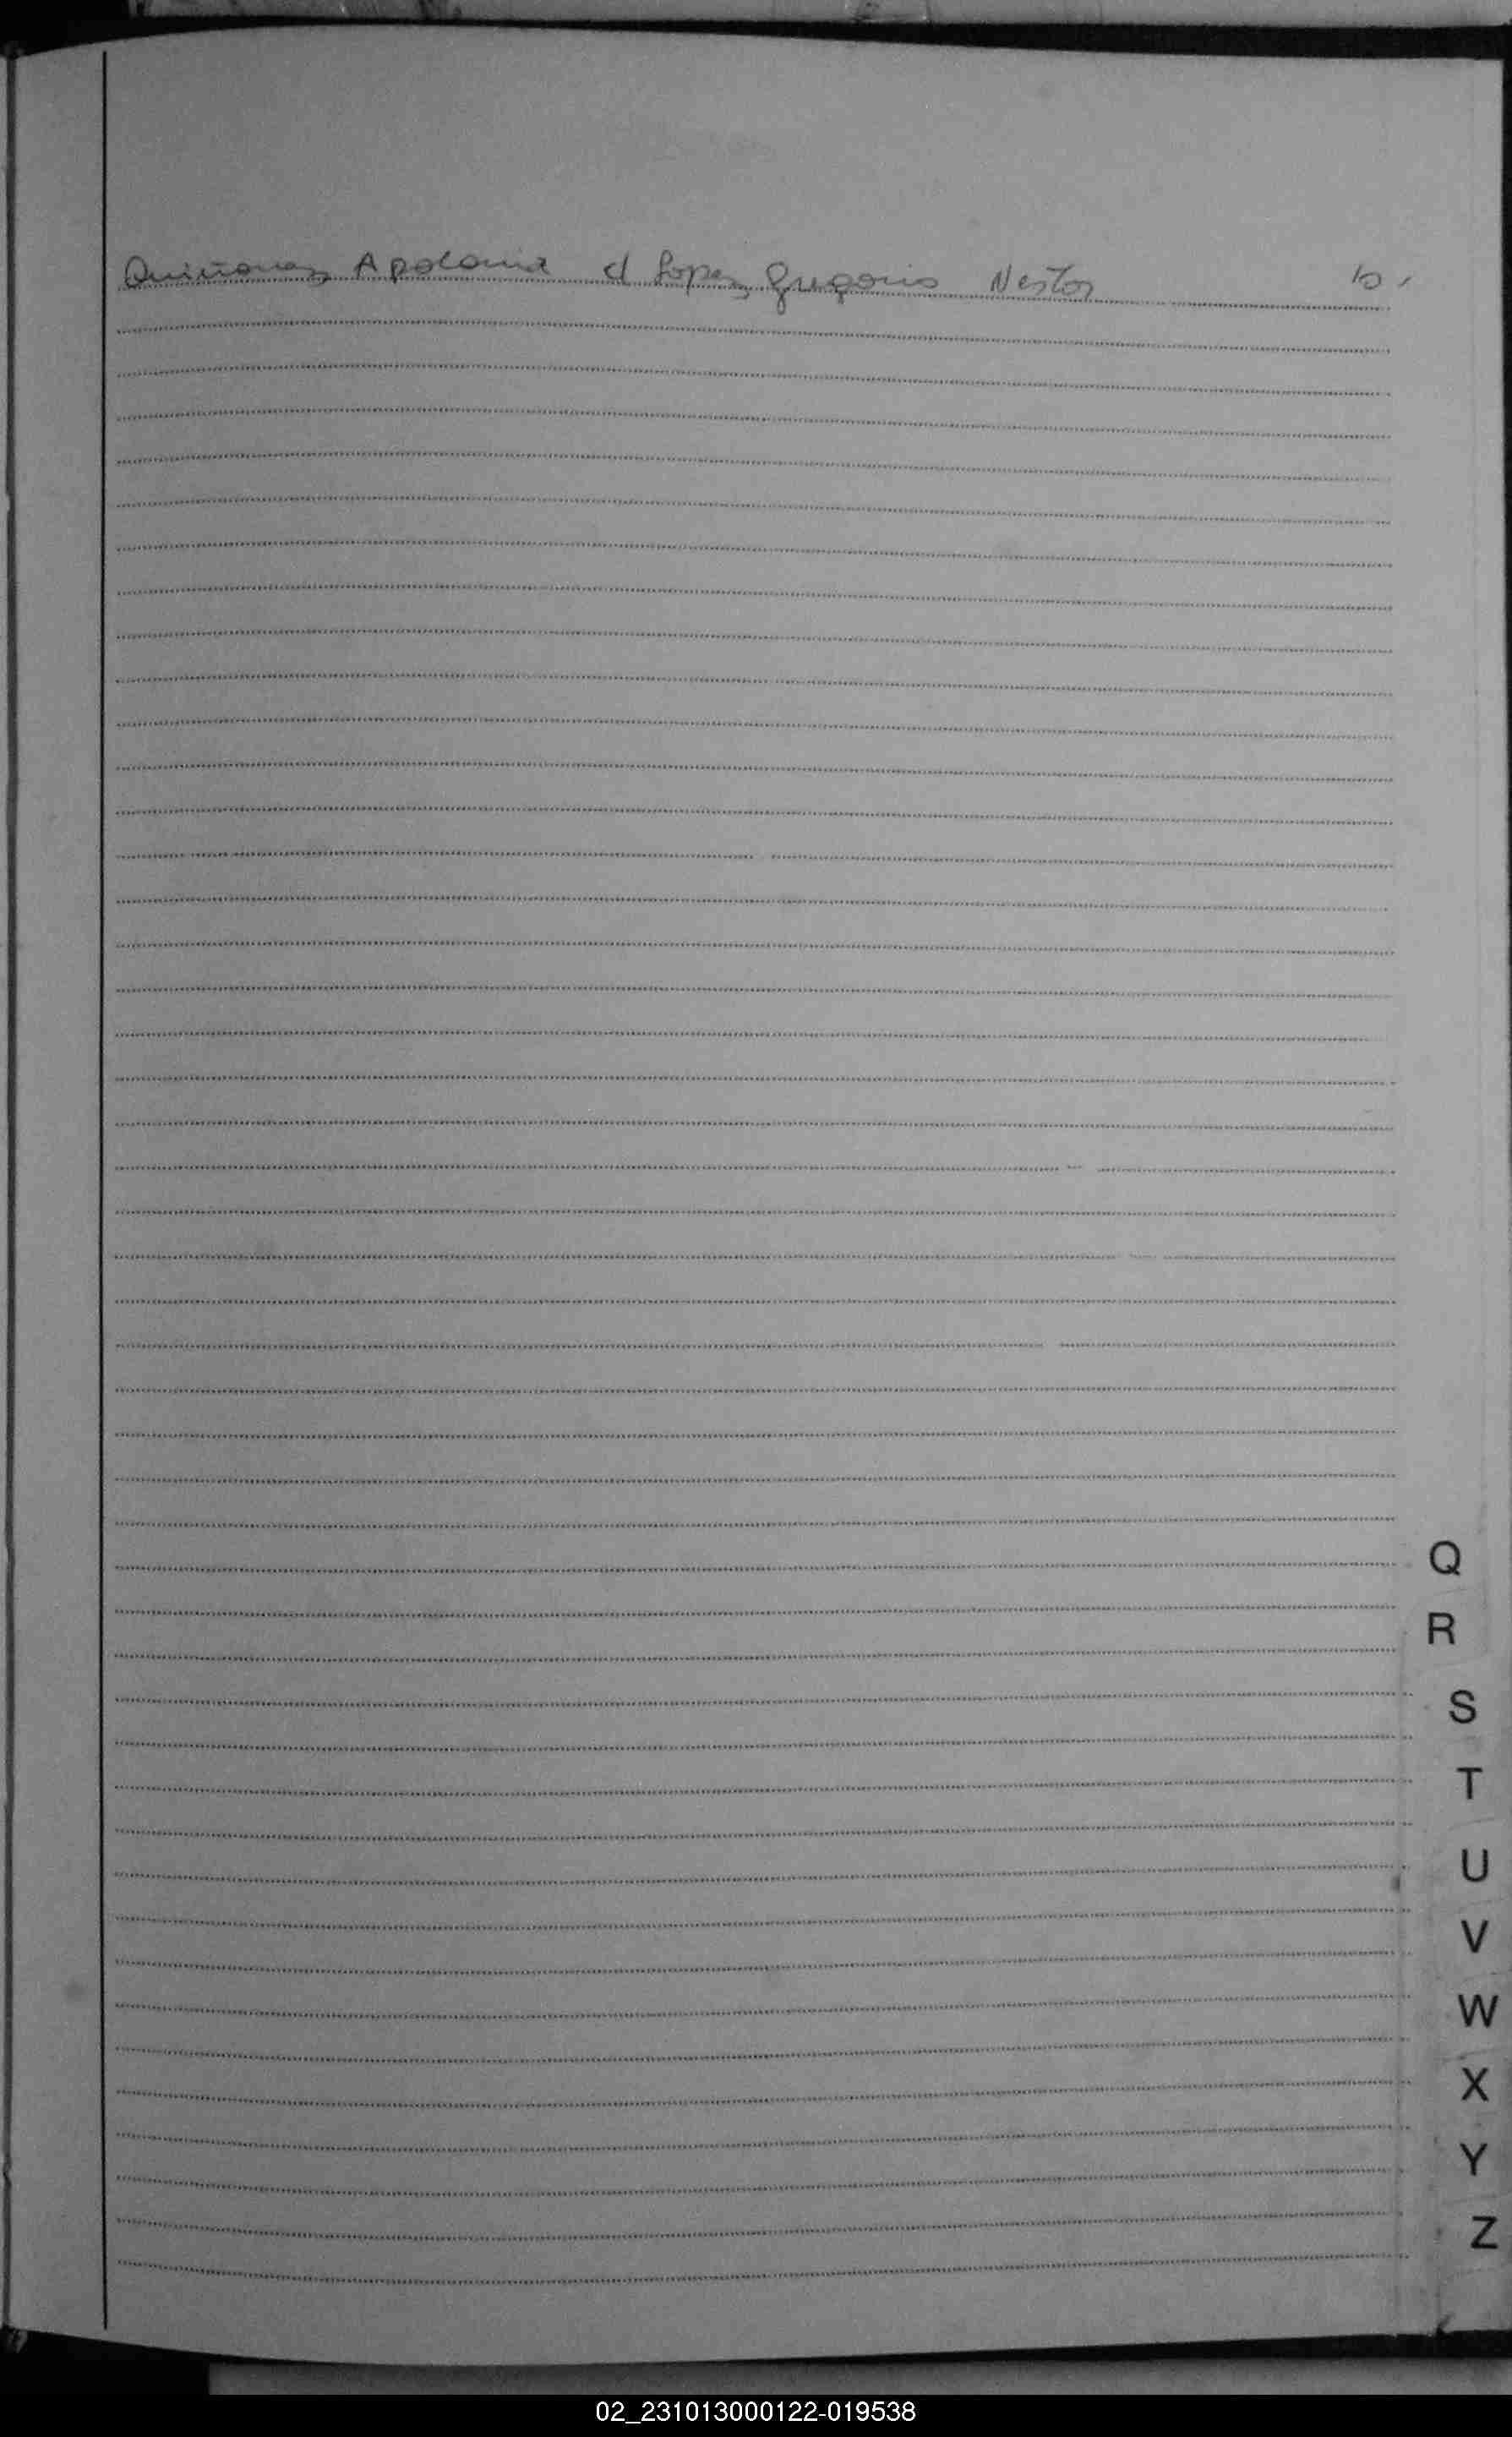 Quiñonez Apolonia c/ Lopez Gregorio Nestor 10.
Q
R
S
T
U
V
W
X
Y
Z
02_231013000122-019538